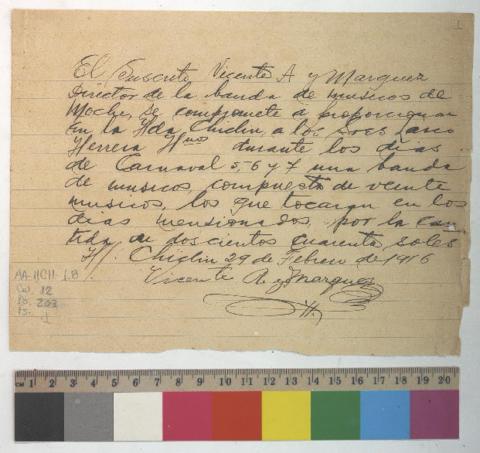 1
El Suscrito Vicente A y Marquez
Director de la banda de musicos de
Moche, se compromete a proporcionar
en la Hda, Chiclin, a los Sres Larco
Herrera Hnos durante los dias
de Carnaval 5, 6 y 7 una banda
de musicos, compuesta de veinte
musicos, los que tocaran en los
dias mensionados, por la can-
tida de doscientos cuarenta soles
H/. Chiclin 29 de Febrero de 1916
Vicente A. y Marquez
AA-HCH-1.8
12
203
1 2 3 4 5 6 7 8 9 10 11 12 13 14 15 16 17 18 19 20